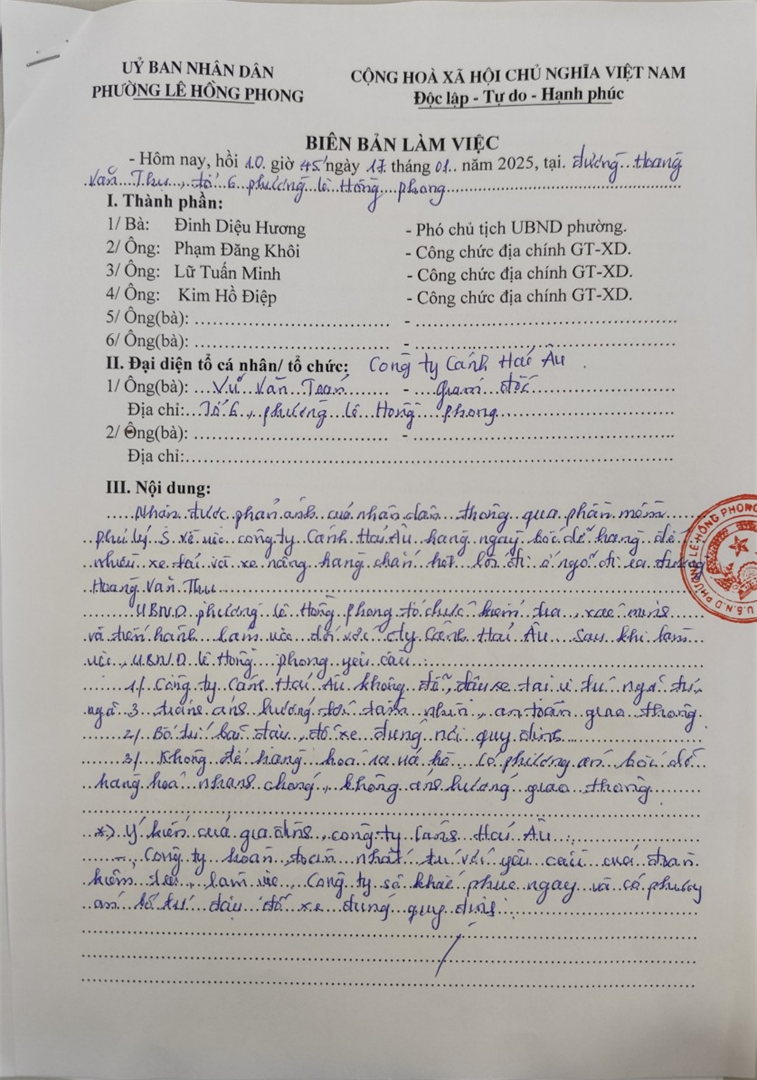 UỶ BAN NHÂN DÂN
PHƯỜNG LÊ HỒNG PHONG
CỘNG HOÀ XÃ HỘI CHỦ NGHĨA VIỆT NAM
Độc lập - Tự do - Hạnh phúc
BIÊN BẢN LÀM VIỆC
- Hôm nay, hồi 10 giờ 45 ngày 17 tháng 01 năm 2025, tại đường Hoàng
Văn Thụ, tổ 6 phường Lê Hồng Phong
I. Thành phần:
1/ Bà: Đinh Diệu Hương - Phó chủ tịch UBND phường.
2/ Ông: Phạm Đăng Khôi - Công chức địa chính GT-XD.
3/ Ông: Lữ Tuấn Minh - Công chức địa chính GT-XD.
4/ Ông: Kim Hồ Điệp - Công chức địa chính GT-XD.
5/ Ông(bà): -
6/ Ông(bà): -
II. Đại diện tổ cá nhân/ tổ chức: Công ty Cánh Hải Âu.
1/ Ông(bà): Vũ Văn Toán - Giám đốc
Địa chỉ: Tổ 6, phường Lê Hồng Phong
2/ Ông(bà): -
Địa chỉ:
III. Nội dung:
Nhận được phản ánh của nhân dân thông qua phần mềm
phủ lý S về việc công ty Cánh Hải Âu hàng ngày bốc dỡ hàng để
nhiều xe tải và xe nâng hàng chắn hết lối đi ở ngõ đi ra đường
Hoàng Văn Thụ
UBND phường Lê Hồng Phong tổ chức kiểm tra, xác minh
và tiến hành làm việc đối với cty Cánh Hải Âu. Sau khi làm
việc, UBND Lê Hồng Phong yêu cầu:
1/ Công ty Cánh Hải Âu không đỗ, dừng xe tại vị trí ngã tư,
ngã 3 tránh ảnh hưởng tới tầm nhìn, an toàn giao thông
2/ Bố trí bãi đậu, đỗ xe đúng nơi quy định
3/ Không để hàng hoá ra vỉa hè. Có phương án bốc dỡ
hàng hoá nhanh chóng, không ảnh hưởng giao thông
*) Ý kiến của gia đình, công ty Cánh Hải Âu:
-, Công ty hoàn toàn nhất trí với yêu cầu của đoàn
kiểm tra, làm việc, Công ty sẽ khắc phục ngay và có phương
án bố trí đậu đỗ xe đúng quy định.
U.B.N.D PHƯỜNG LÊ HỒNG PHONG